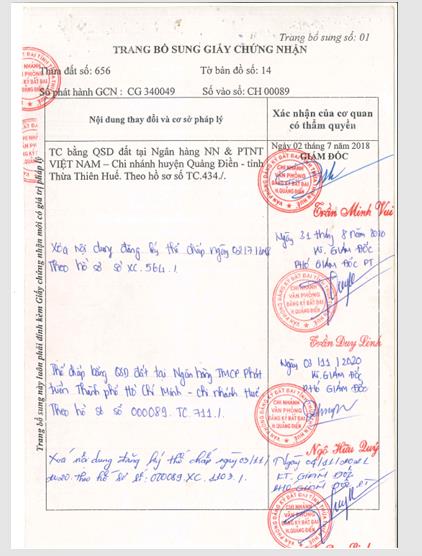 Trang bổ sung số: 01
TRANG BỔ SUNG GIẤY CHỨNG NHẬN
Thửa đất số: 656
Tờ bản đồ số: 14
Số phát hành GCN : CG 340049
Số vào sổ: CH 00089
Nội dung thay đổi và cơ sở pháp lý
Xác nhận của cơ quan
có thẩm quyền
TC bằng QSD đất tại Ngân hàng NN & PTNT
VIỆT NAM – Chi nhánh huyện Quảng Điền - tỉnh
Thừa Thiên Huế. Theo hồ sơ số TC.434./.
Ngày 02 tháng 7 năm 2018
GIÁM ĐỐC
Trần Minh Vui
Xóa nội dung đăng ký thế chấp ngày
Theo hồ sơ số XC. 564./.
Ngày 31 tháng 8 năm 2020
KT. GIÁM ĐỐC
PHÓ GIÁM ĐỐC PT
CHI NHÁNH
VĂN PHÒNG
ĐĂNG KÝ ĐẤT ĐAI
H.QUẢNG ĐIỀN
Trần Duy Linh
Thế chấp bằng QSD đất tại Ngân hàng TMCP Phát
triển Thành phố Hồ Chí Minh - chi nhánh Huế
Theo hồ sơ số 000089. TC. 711./.
Ngày 03/11/2020
KT. GIÁM ĐỐC
PHÓ GIÁM ĐỐC
CHI NHÁNH
VĂN PHÒNG
ĐĂNG KÝ ĐẤT ĐAI
H.QUẢNG ĐIỀN
Ngô Hữu Quý
Xoá nội dung đăng ký thế chấp ngày 03/11/
2020 theo hồ sơ số: 000089.XC. 1103./.
KT. GIÁM ĐỐC
PHÓ GIÁM ĐỐC PT
CHI NHÁNH
VĂN PHÒNG
ĐĂNG KÝ ĐẤT ĐAI
H.QUẢNG ĐIỀN
Trang bổ sung này luôn phải đính kèm Giấy chứng nhận mới có giá trị pháp lý